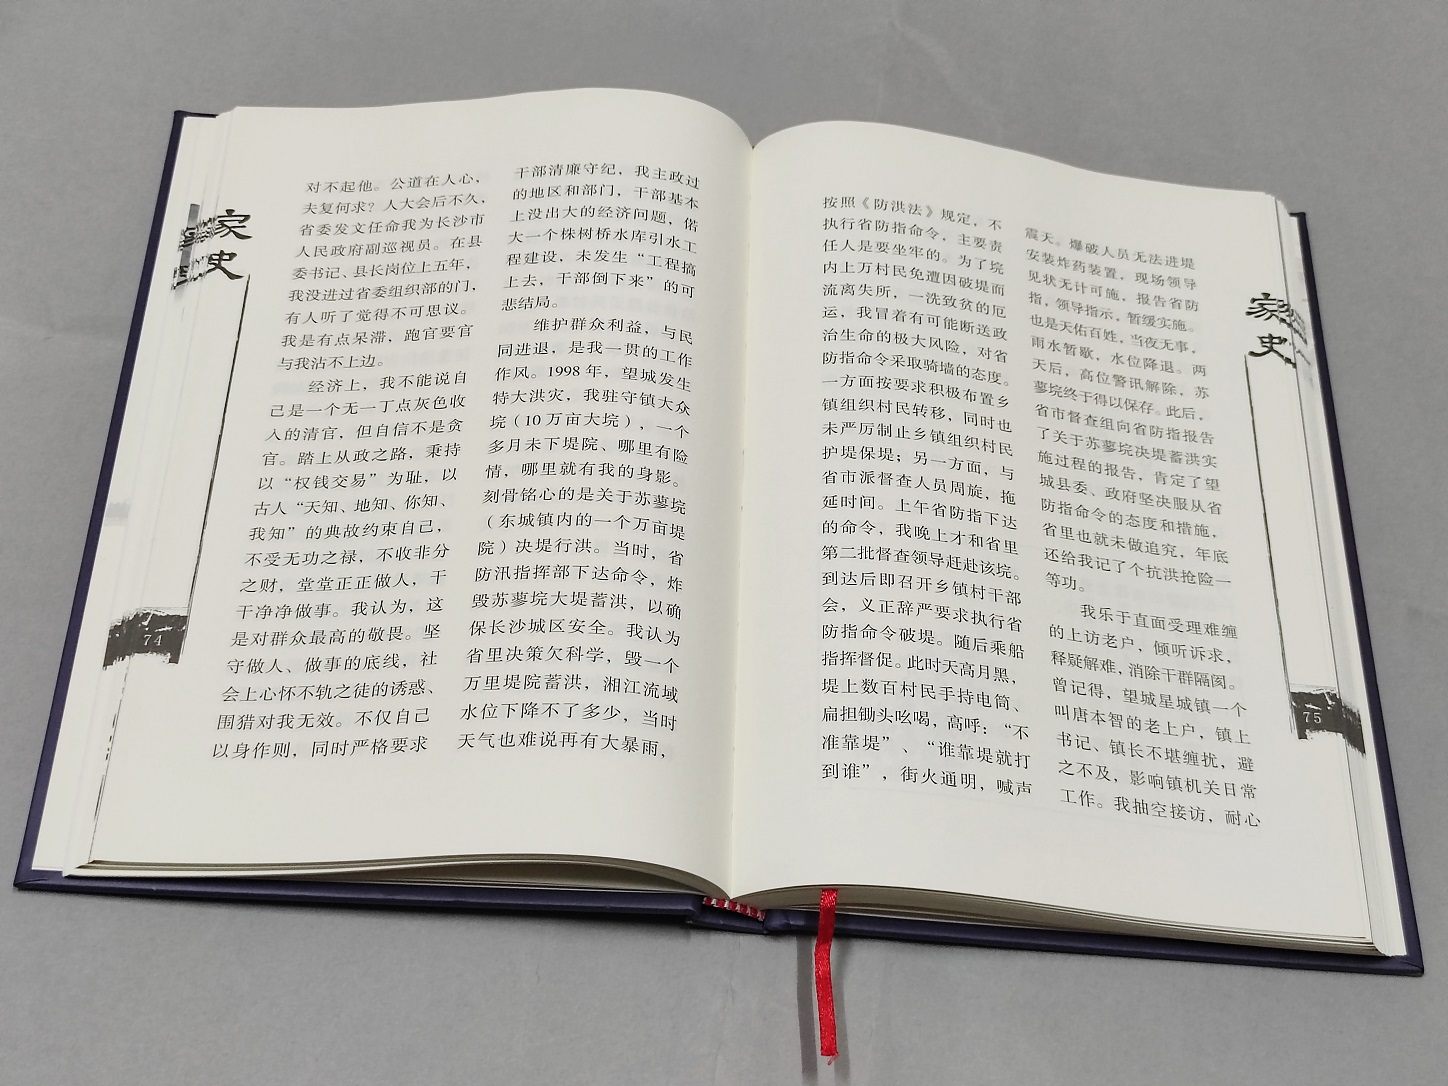 家史
对不起他。公道在人心，
夫复何求？人大会后不久，
省委发文任命我为长沙市
人民政府副巡视员。在县
委书记、县长岗位上五年，
我没进过省委组织部的门，
有人听了觉得不可思议。
我是有点呆滞，跑官要官
与我沾不上边。
经济上，我不能说自
己是一个无一丁点灰色收
入的清官，但自信不是贪
官。踏上从政之路，秉持
以“权钱交易”为耻，以
古人“天知、地知、你知、
我知”的典故约束自己，
不受无功之禄，不收非分
之财，堂堂正正做人，干
干净净做事。我认为，这
是对群众最高的敬畏。坚
守做人、做事的底线，社
会上心怀不轨之徒的诱惑、
围猎对我无效。不仅自己
以身作则，同时严格要求
干部清廉守纪，我主政过
的地区和部门，干部基本
上没出大的经济问题，偌
大一个株树桥水库引水工
程建设，未发生“工程搞
上去，干部倒下来”的可
悲结局。
维护群众利益，与民
同进退，是我一贯的工作
作风。1998 年，望城发生
特大洪灾，我驻守镇大众
垸（10 万亩大垸），一个
多月未下堤院、哪里有险
情，哪里就有我的身影。
刻骨铭心的是关于苏蓼垸
（东城镇内的一个万亩堤
院）决堤行洪。当时，省
防汛指挥部下达命令，炸
毁苏蓼垸大堤蓄洪，以确
保长沙城区安全。我认为
省里决策欠科学，毁一个
万里堤院蓄洪，湘江流域
水位下降不了多少，当时
天气也难说再有大暴雨，
74
按照《防洪法》规定，不
执行省防指命令，主要责
任人是要坐牢的。为了垸
内上万村民免遭因破堤而
流离失所，一洗致贫的厄
运，我冒着有可能断送政
治生命的极大风险，对省
防指命令采取骑墙的态度。
一方面按要求积极布置乡
镇组织村民转移，同时也
未严厉制止乡镇组织村民
护堤保堤；另一方面，与
省市派督查人员周旋，拖
延时间。上午省防指下达
的命令，我晚上才和省里
第二批督查领导赶赴该垸。
到达后即召开乡镇村干部
会，义正辞严要求执行省
防指命令破堤。随后乘船
指挥督促。此时天高月黑，
堤上数百村民手持电筒、
扁担锄头吆喝，高呼：“不
准靠堤”、“谁靠堤就打
到谁”，街火通明，喊声
震天。爆破人员无法进堤
安装炸药装置，现场领导
见状无计可施，报告省防
指，领导指示，暂缓实施。
也是天佑百姓，当夜无事，
雨水暂歇，水位降退。两
天后，高位警讯解除，苏
蓼垸终于得以保存。此后，
省市督查组向省防指报告
了关于苏蓼垸决堤蓄洪实
施过程的报告，肯定了望
城县委、政府坚决服从省
防指命令的态度和措施，
省里也就未做追究，年底
还给我记了个抗洪抢险一
等功。
我乐于直面受理难缠
的上访老户，倾听诉求，
释疑解难，消除干群隔阂。
曾记得，望城星城镇一个
叫唐本智的老上户，镇上
书记、镇长不堪缠扰，避
之不及，影响镇机关日常
工作。我抽空接访，耐心
家史
75